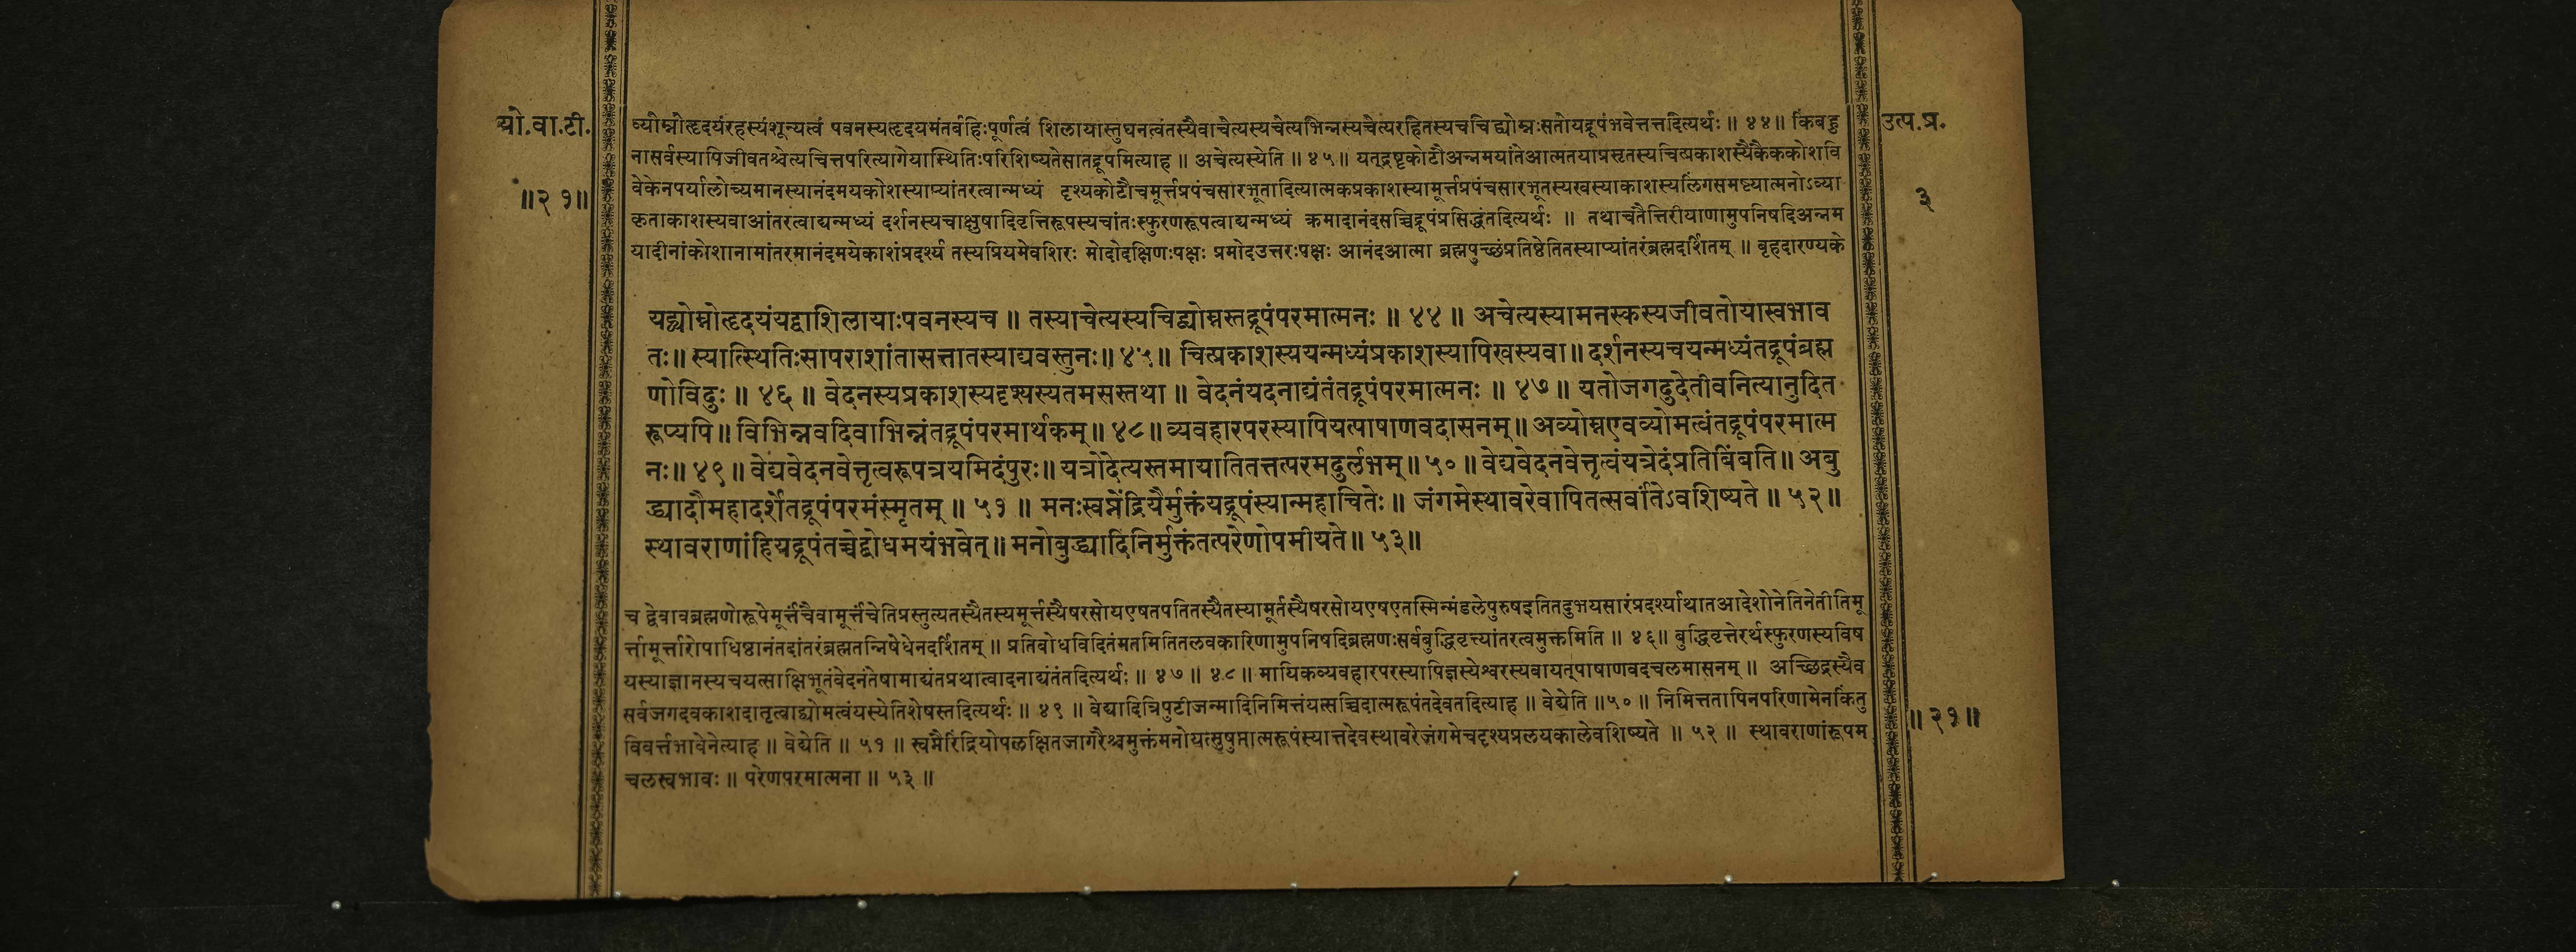 यो.वा.टी.
॥२१॥
व्योम्नोहृदयंरहस्यंशून्यत्वं पवनस्यहृदयमंतर्बहिःपूर्णत्वं शिलायास्तुघनत्वंतस्यैवाचेत्यस्यचेत्यभिन्नस्यचेत्यरहितस्यचचिद्व्योम्नःसतोयद्रूपंभवेत्तत्तदित्यर्थः ॥ ४४ ॥ किंबहु
नासर्वस्यापिजीवतश्चेत्यचित्तपरित्यागेयास्थितिःपरिशिष्यतेसातद्रूपमित्याह ॥ अचेत्यस्येति ॥ ४५ ॥ यत्द्रष्टृकोटौअन्नमयांतेआत्मतयाप्रसृतस्यचित्प्रकाशस्यैकैककोशवि
वेकेनपर्यालोच्यमानस्यानंदमयकोशस्याप्यांतरत्वान्मध्यं दृश्यकोटौचमूर्त्तप्रपंचसारभूतादित्यात्मकप्रकाशस्यामूर्त्तप्रपंचसारभूतस्यखस्याकाशस्यलिंगसमष्ट्यात्मनोऽव्या
कृताकाशस्यवाआंतरत्वाद्यन्मध्यं दर्शनस्यचाक्षुषादिवृत्तिरूपस्यचांतःस्फुरणरूपत्वाद्यन्मध्यं क्रमादानंदसच्चिद्रूपंप्रसिद्धंतदित्यर्थः ॥ तथाचतैत्तिरीयाणामुपनिषदिअन्नम
यादीनांकोशानामांतरमानंदमयेकाशंप्रदर्श्य तस्यप्रियमेवशिरः मोदोदक्षिणःपक्षः प्रमोदउत्तरःपक्षः आनंदआत्मा ब्रह्मपुच्छंप्रतिष्ठेतितस्याप्यांतरंब्रह्मदर्शितम् ॥ बृहदारण्यके
यद्व्योम्नोहृदयंयद्वाशिलायाःपवनस्यच ॥ तस्याचेत्यस्यचिद्व्योम्नस्तद्रूपंपरमात्मनः ॥ ४४ ॥ अचेत्यस्यामनस्कस्यजीवतोयास्वभाव
तः॥ स्यात्स्थितिःसापराशांतासत्तातस्याद्यवस्तुनः॥४५॥ चित्प्रकाशस्ययन्मध्यंप्रकाशस्यापिखस्यवा॥ दर्शनस्यचयन्मध्यंतद्रूपंब्रह्म
णोविदुः ॥ ४६ ॥ वेदनस्यप्रकाशस्यदृश्यस्यतमसस्तथा ॥ वेदनंयदनाद्यंतंतद्रूपंपरमात्मनः ॥ ४७ ॥ यतोजगदुदेतीवनित्यानुदित
रूप्यपि॥ विभिन्नवदिवाभिन्नंतद्रूपंपरमार्थकम्॥ ४८॥ व्यवहारपरस्यापियत्पाषाणवदासनम्॥ अव्योम्नएवव्योमत्वंतद्रूपंपरमात्म
नः॥ ४९ ॥ वेद्यवेदनवेत्तृत्वरूपत्रयमिदंपुरः॥ यत्रोदेत्यस्तमायातितत्तत्परमदुर्लभम्॥ ५० ॥ वेद्यवेदनवेत्तृत्वंयत्रेदंप्रतिबिंबति॥ अबु
द्ध्यादौमहादर्शेतद्रूपंपरमंस्मृतम् ॥ ५१ ॥ मनःस्वप्नेंद्रियैर्मुक्तंयद्रूपंस्यान्महाचितेः ॥ जंगमेस्थावरेवापितत्सर्वांतेऽवशिष्यते ॥ ५२॥
स्थावराणांहियद्रूपंतच्चेद्बोधमयंभवेत्॥ मनोबुद्ध्यादिनिर्मुक्तंतत्परेणोपमीयते॥ ५३॥
च द्वेवावब्रह्मणोरूपेमूर्त्तंचैवामूर्त्तंचेतिप्रस्तुत्यतस्यैतस्यमूर्त्तस्यैषरसोयएषतपतितस्यैतस्यामूर्तस्यैषरसोयएषएतस्मिन्मंडलेपुरुषइतितदुभयसारंप्रदर्श्याथातआदेशोनेतिनेतीतिमू
र्त्तामूर्त्तारोपाधिष्ठानंतदांतरंब्रह्मतन्निषेधेनदर्शितम् ॥ प्रतिबोधविदितंमतमितितलवकारिणामुपनिषदिब्रह्मणःसर्वबुद्धिवृत्त्यांतरत्वमुक्तमिति ॥ ४६॥ बुद्धिवृत्तेरर्थस्फुरणस्यविष
यस्याज्ञानस्यचयत्साक्षिभूतंवेदनंतेषामाद्यंतप्रथात्वादनाद्यंतंतदित्यर्थः ॥ ४७ ॥ ४८ ॥ मायिकव्यवहारपरस्यापिज्ञस्येश्वरस्यवायत्पाषाणवदचलमासनम् ॥ अच्छिद्रस्यैव
सर्वजगदवकाशदातृत्वाद्योमत्वंयस्येतिशेषस्तदित्यर्थः ॥ ४९ ॥ वेद्यादित्रिपुटीजन्मादिनिमित्तंयत्सच्चिदात्मरूपंतदेवतदित्याह ॥ वेद्येति ॥५० ॥ निमित्ततापिनपरिणामेनकिंतु
विवर्त्तभावेनेत्याह ॥ वेद्येति ॥ ५१ ॥ स्वप्नैरिंद्रियोपलक्षितजागरैश्चमुक्तंमनोयत्सुषुप्तात्मरूपंस्यात्तदेवस्थावरेजंगमेचदृश्यप्रलयकालेवशिष्यते ॥ ५२ ॥ स्थावराणांरूपम
चलस्वभावः ॥ परेणपरमात्मना ॥ ५३ ॥
उत्प.प्र.
३
॥२१॥